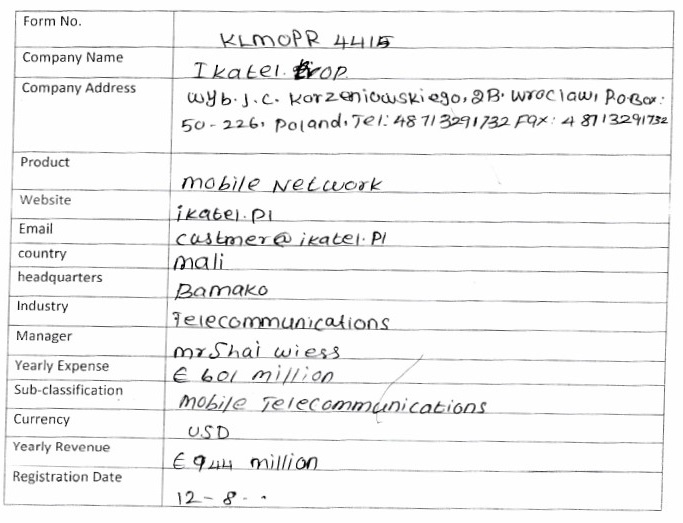 Form No.
KLMOPR 4415
Company Name
Ikatel.
Company Address
wyb.J.C. Korzeniowskiego, 2B. Wroclaw, P.O.Box:
50-226, Poland, Tel: 48713291732 Fax: 48713291732
Product
mobile Network
Website
ikatel.pl
Email
custmer@ikatel.Pl
country
mali
headquarters
Bamako
Industry
Telecommunications
Manager
mr Shai wiess
Yearly Expense
€ 601 million
Sub-classification
Mobile Telecommunications
Currency
USD
Yearly Revenue
€ 944 million
Registration Date
12-8-